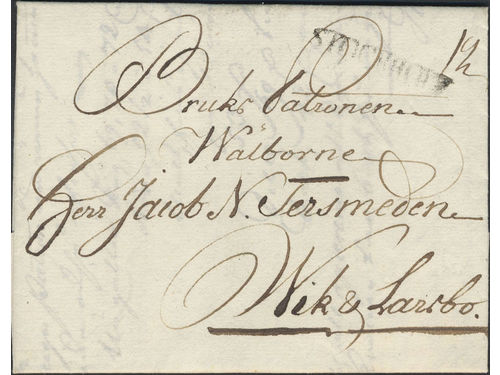 STOCKHOLM 12
Bruks Patronen
Wälborne
Herr Jacob N. Tersmeden
Wik & Larsbo.